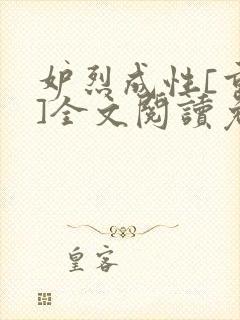 妒烈成性[
]全文閱讀
皇客